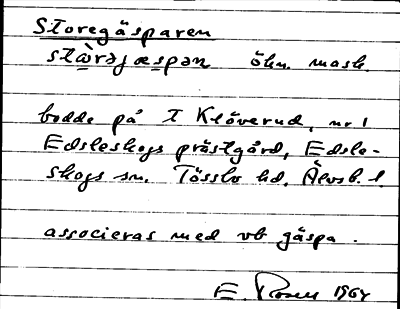 Storegäsparen
stärajæspan öhn. mask.
bodde på T Klöverud, nr 1
Edsleskogs prästgård, Edsle-
skogs sn. Tössbo hd, Älvsb. l.
associeras med vb gäspa.
E. Rosen 1964